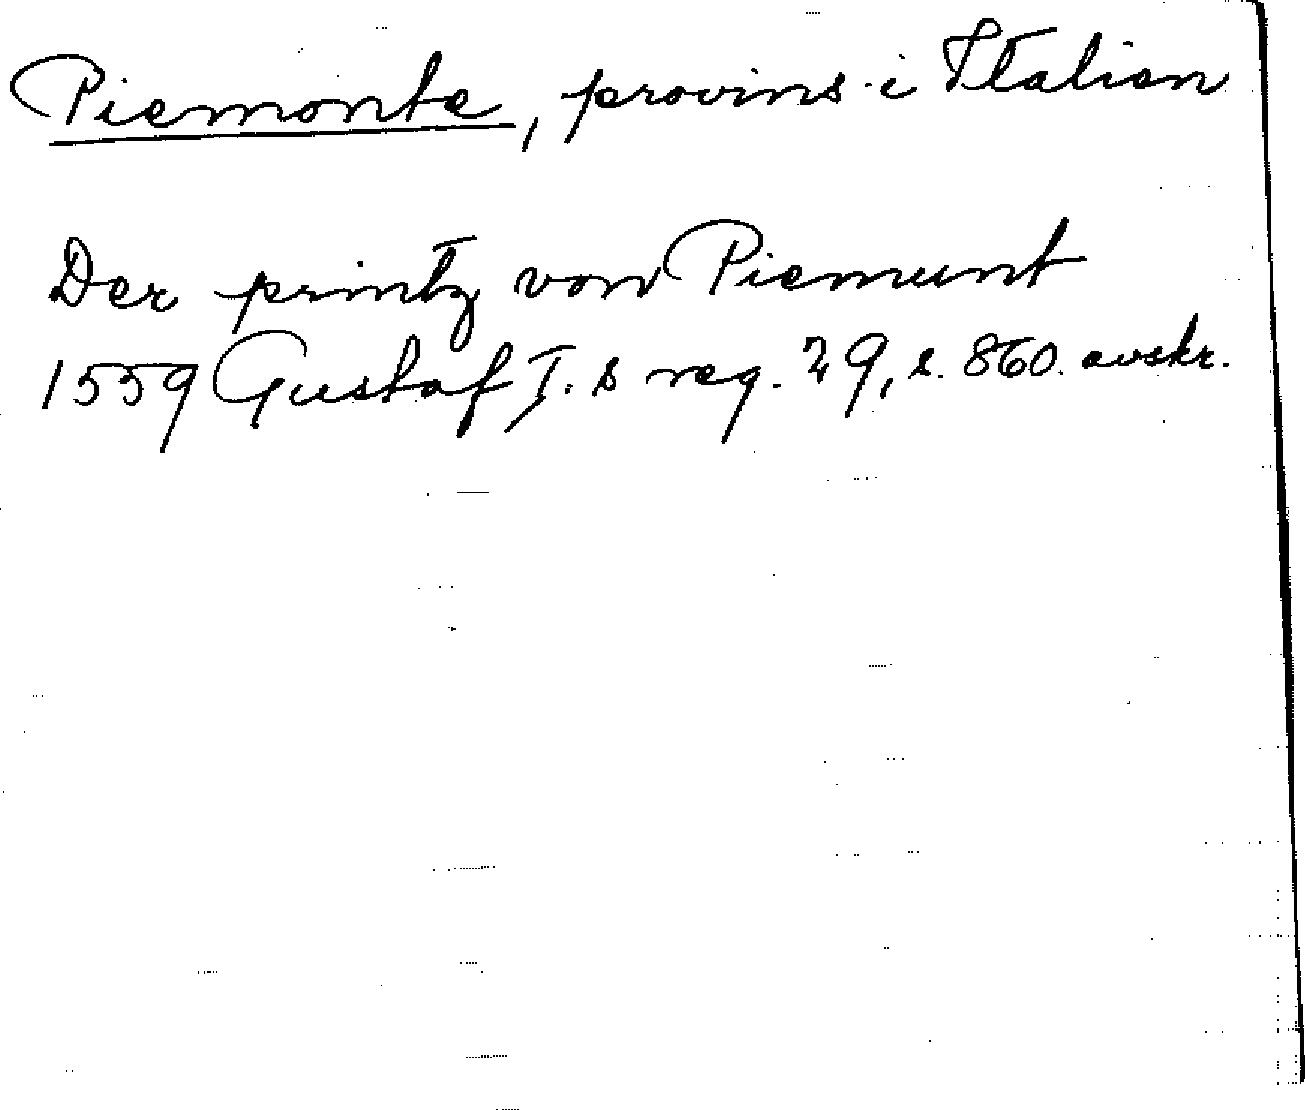 Piemonte, provins i Italien
Der printz von Piemunt
1559 Gustaf I:s reg. 29, s. 860. avskr.